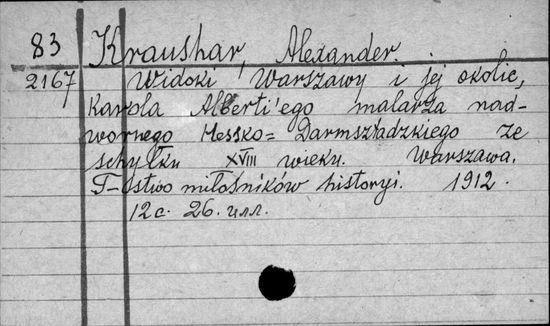 83 Kraushar, Alexander
2167 Widoki Warszawy i jej okolic,
Karola Alberti'ego malarza nad-
wornego Hessko=Darmsztadzkiego ze
schyłku XVIII wieku. Warszawa.
T-stwo miłośników historyi. 1912.
12 с. 26. илл.